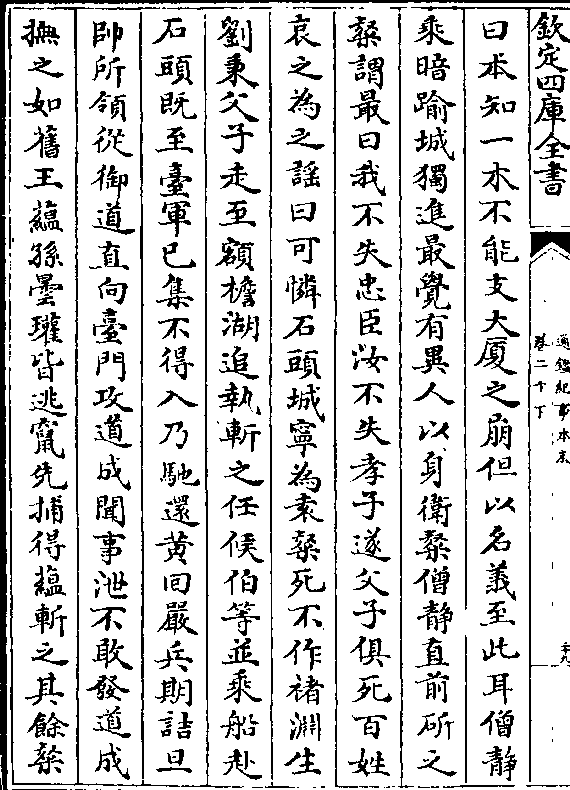 欽定四庫全書
通鑑紀事本末
卷二十下
曰本知一木不能支大厦之崩但以名義至此耳僧靜
乘暗踰城獨進最覺有異人以身衛粲僧靜直前斫之
粲謂最曰我不失忠臣汝不失孝子遂父子俱死百姓
哀之為之謡曰可憐石頭城寧為袁粲死不作褚淵生
劉秉父子走至額檐湖追執斬之任候伯等並乘船赴
石頭既至臺軍已集不得入乃馳還黄回嚴兵期詰旦
帥所領從御道直向臺門攻道成聞事泄不敢發道成
撫之如舊王蘊孫曇瓘皆逃竄先捕得蘊斬之其餘粲